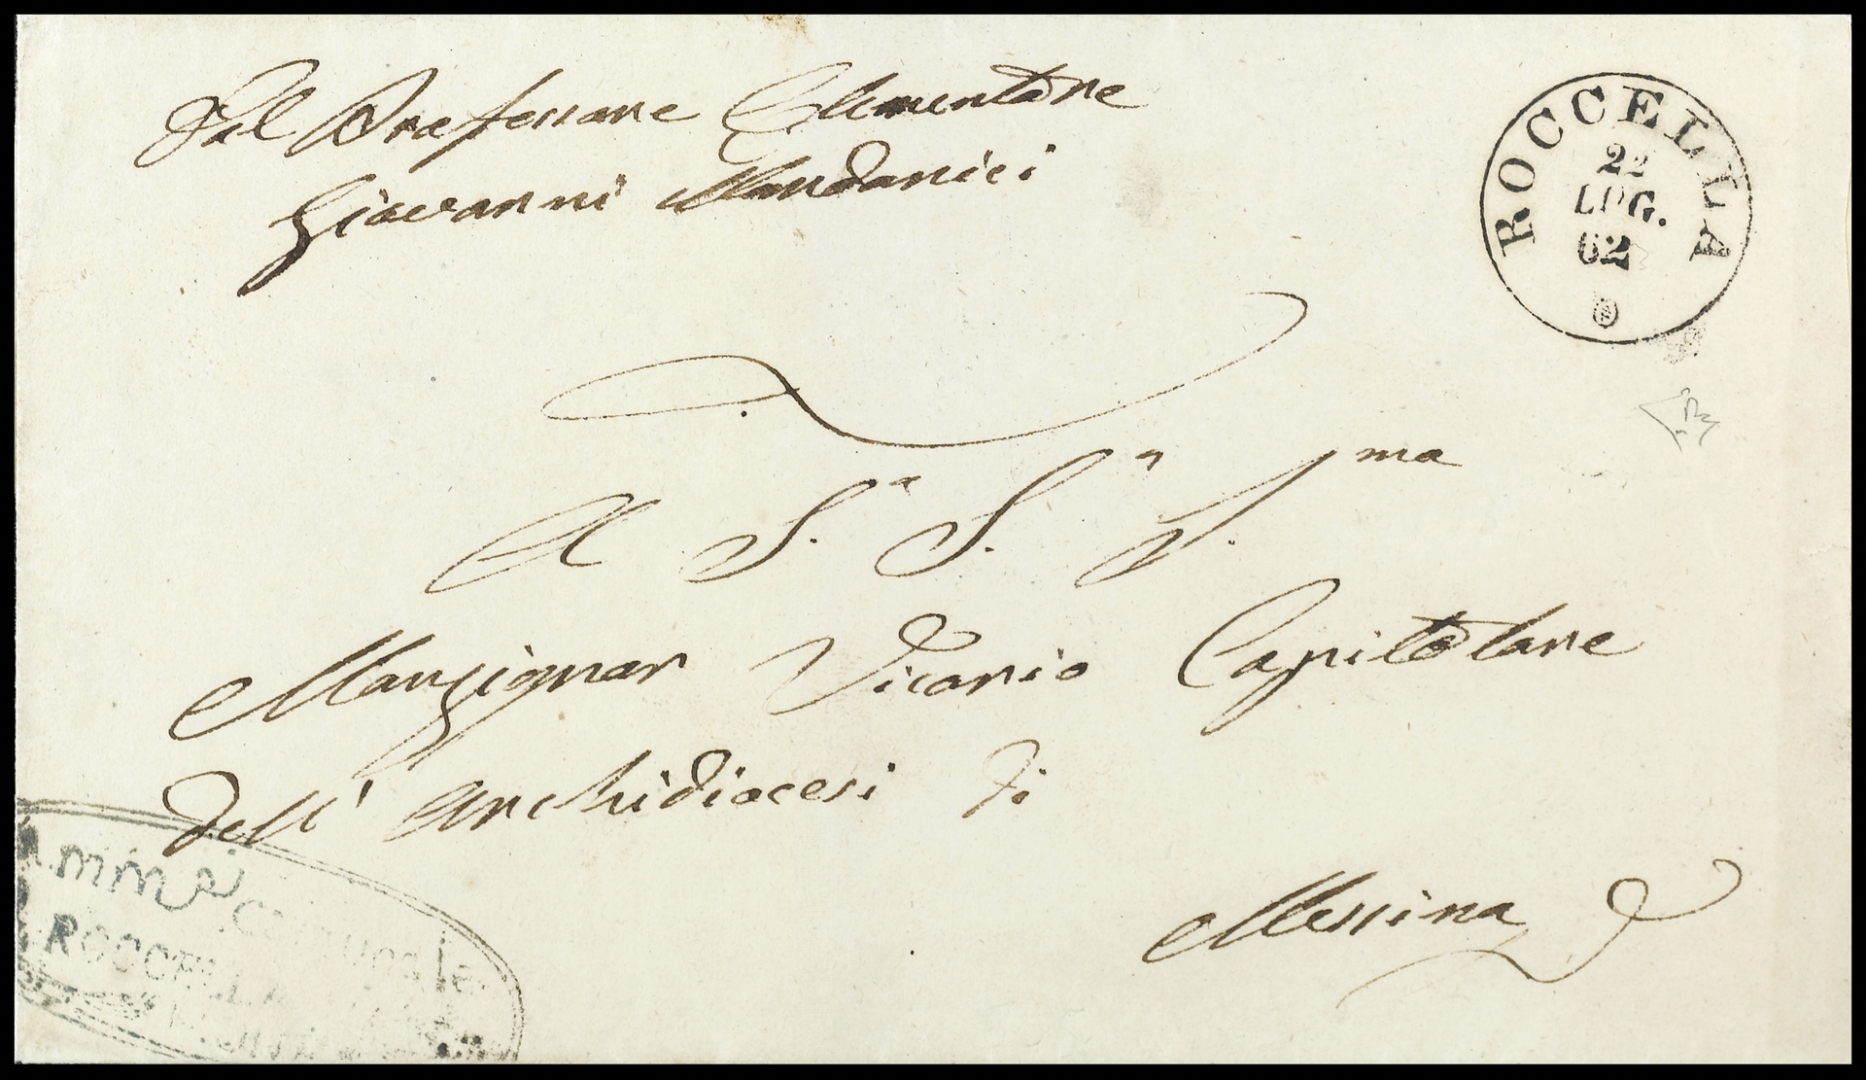 Dal Professore Elementare
Giovanni Mandanici
ROCCELLA
22
LUG.
62
A S.a S.a I.ma
Monsignor Vicario Capitolare
dell' Archidiocesi di
Messina
Amm
comunale
ROCCELLA